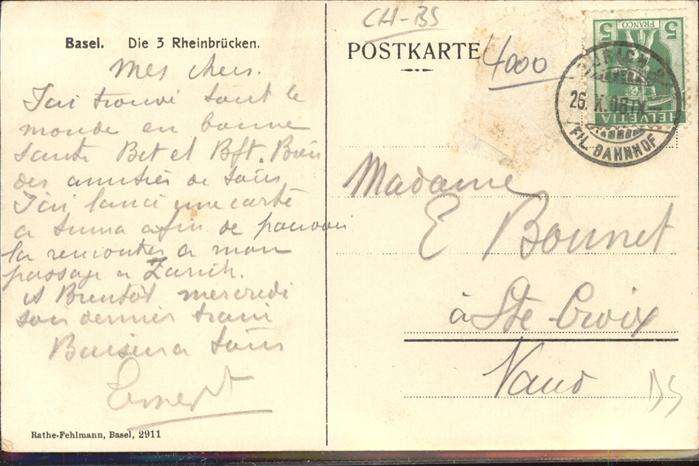 Basel. Die 3 Rheinbrücken.
Mes chers.
J'ai trouvé tout le
monde en bonne
santé Bet et Bft. Bien
des amitiés de tous
J'ai lancé une carte
a Emma afin de pouvoir
la rencontrer a mon
passage a Zurich.
A Bientôt mercredi
soir dernier train
Baisers a tous
Ernest
Rathe-Fehlmann, Basel, 2911
CH-BS
POSTKARTE
4000
5 FRANCO 5
HELVETIA
ZÜRICH
26. X. 08
FIL. BAHNHOF
Madame
E Bonnet
à Ste Croix
Vaud
BS